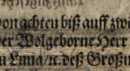 von achten biß auff zwe
er Wolgeborne Herr
Lima/ n. deß Großm